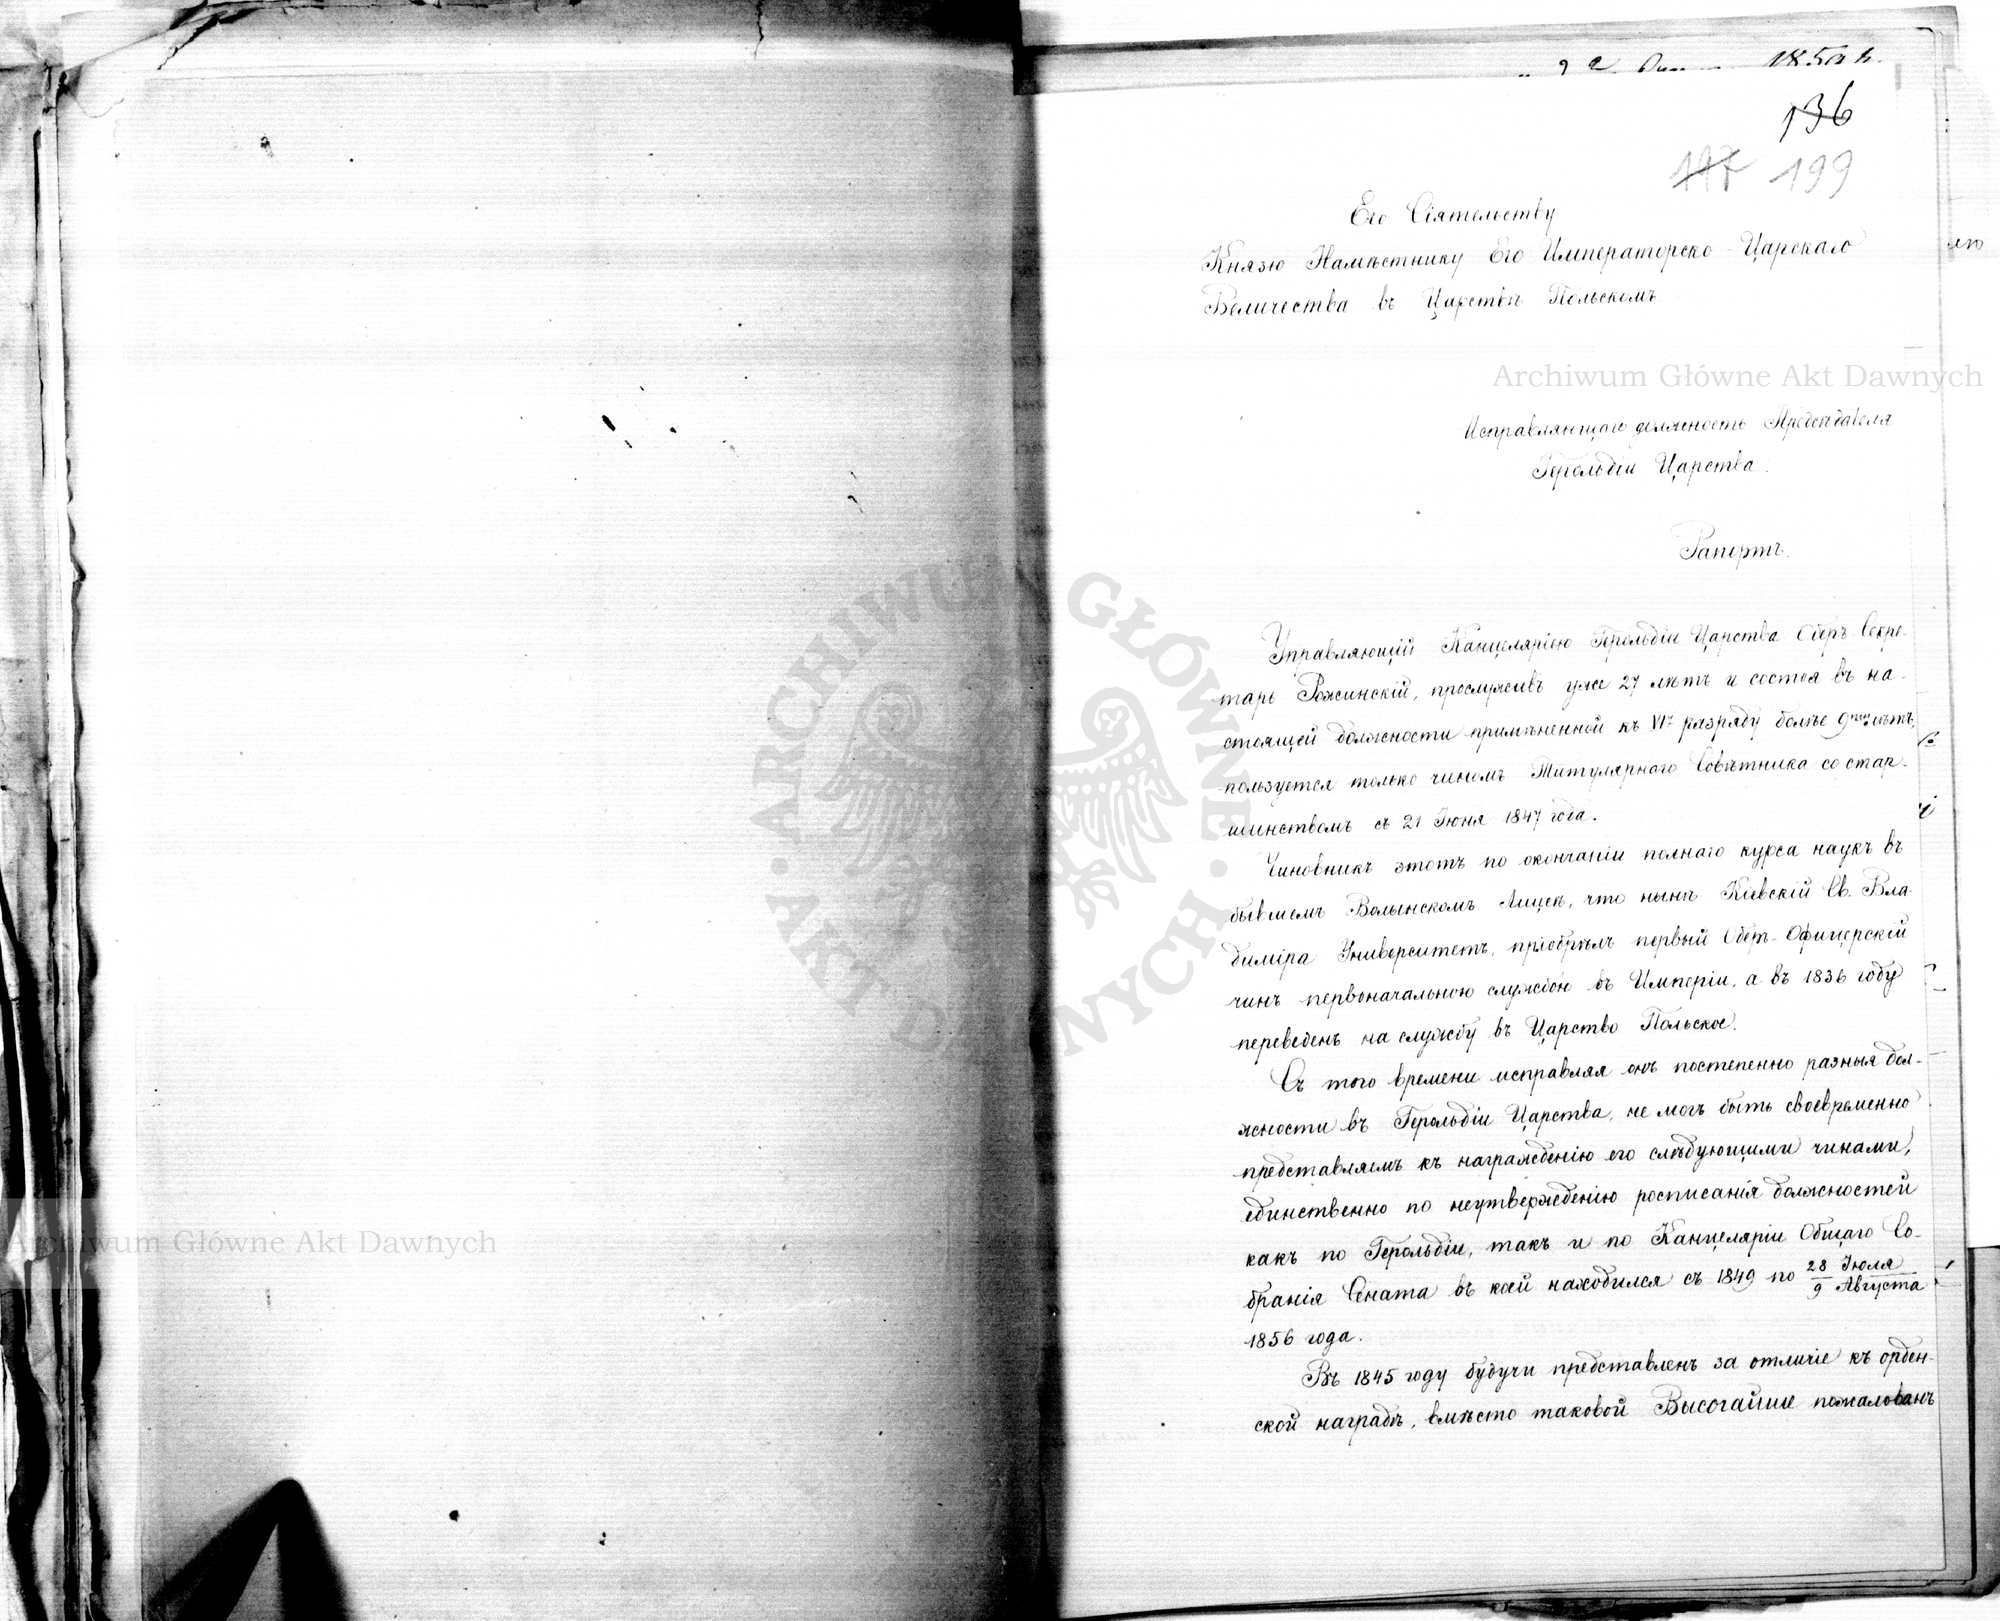 1858 г.
136
197 199
Его Сіятельству
Князю Намѣстнику Его Императорско-Царскаго
Величества въ Царствѣ Польскомъ
Archiwum Główne Akt Dawnych
Исправляющаго должность Предсѣдателя
Герольдіи Царства.
Рапортъ.
Управляющій Канцеляріею Герольдіи Царства Оберъ-Секре-
тарь Рожинскій, прослуживъ уже 27 лѣтъ и состоя въ на-
стоящей должности примѣненной къ VII разряду болѣе 9ти лѣтъ,
пользуется только чиномъ Титулярнаго Совѣтника со стар-
шинствомъ съ 21 Іюня 1847 года.
Чиновникъ этотъ по окончаніи полнаго курса наукъ въ
бывшемъ Волынскомъ Лицеѣ, что нынѣ Кіевскій Св. Вла-
диміра Университетъ, пріобрѣлъ первый Оберъ-Офицерскій
чинъ первоначальною службою въ Имперіи, а въ 1836 году
переведенъ на службу въ Царство Польское.
Съ того времени исправляя онъ постепенно разныя дол-
жности въ Герольдіи Царства, не могъ быть своевременно
представляемъ къ награжденію его слѣдующими чинами,
единственно по неутвержденію росписанія должностей
какъ по Герольдіи, такъ и по Канцеляріи Общаго Со-
бранія Сената въ коей находился съ 1849 по 28 Іюля / 9 Августа
1856 года.
Въ 1845 году будучи представленъ за отличіе къ орден-
ской наградѣ, вмѣсто таковой Высочайше пожалованъ
ARCHIWUM GŁÓWNE · AKT DAWNYCH ·
Archiwum Główne Akt Dawnych